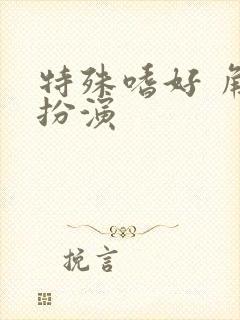 特殊嗜好 角
扮演
挽言